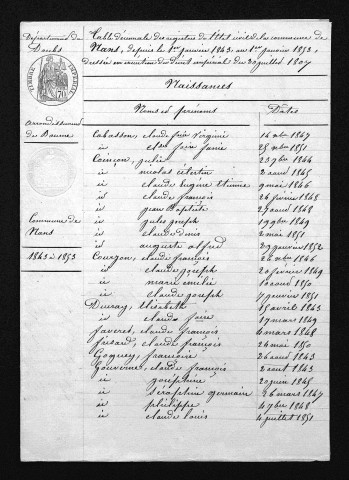 Département du
Doubs
Table décennale des registres de l'état civil de la commune de
Nans, depuis le 1er janvier 1843 au 1er janvier 1853,
dressée en exécution du décret impérial du 20 juillet 1807
Naissances
Noms et prénoms Dates
arrondissement
de Baume
Commune de
Nans
1843 à 1853
Cabasson, claude virginie 14 1847
id 1851
Coinçon, julie 23 9bre 1844
id nicolas célestin 2 août 1845
id claude eugène 9 mai 1846
id claude françois 26 février 1848
id jean baptiste 27 août 1848
id jules joseph 19 9bre 1849
id claude denis 2 mai 1851
id auguste alfred 29 janvier 1852
Courgon, claude françois 1846
id claude joseph 20 février 1849
id marie émélie 10 août 1850
id claude joseph 7 janvier 1851
élisabeth 15 avril 1843
id claude 17 mars 1849
Faveret, claude françois 4 mars 1848
claude françois 26 mai 1850
Goguey, françoise 26 août 1843
Gouverne, claude françois 2 août 1843
id joséphine 20 juin 1845
id séraphin germain 26 mars 1847
id philippe 4 7bre 1848
id claude louis 4 juillet 1851